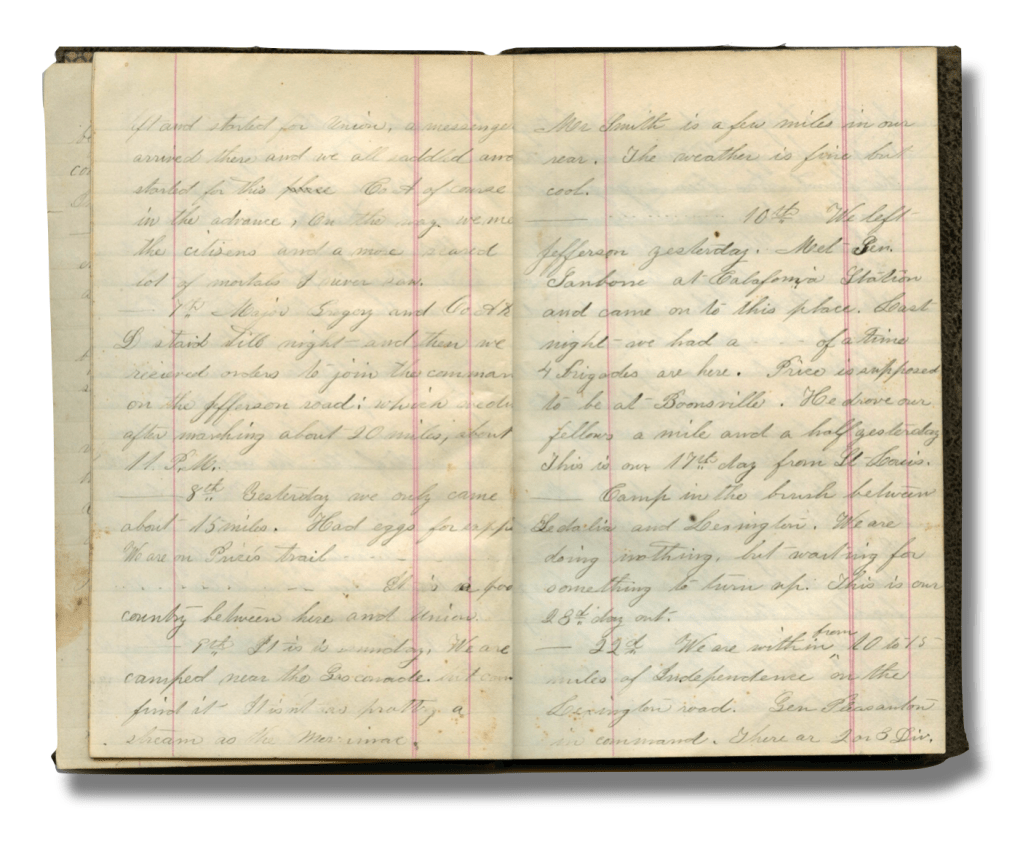 left and started for Union, a messenger
arrived there and we all saddled and
started for this place Co A of course
in the advance, On the way we me
the citisens and a more scared
lot of mortals I never saw.
— 7th Major Gregory and Co A &
D staid till night – and then we
recieved orders to join the comman
on the Jefferson road; which we di
after marching about 20 miles, about
11. P.M.
— 8th Yesterday we only came
about 15 miles. Had eggs for supp
We are on Price's trail
It is a goo
country between here and Union.
— 9th It is Sunday. We are
camped near the Gasconade.
find it It is n't as pretty a
stream as the Merrimac.
Mr Smith is a few miles in our
rear. The weather is fine but
cool.
— 10th We left
Jefferson yesterday. Met Gen.
Sanborne at Calafornia Station
and came on to this place. Last
night – we had a of a time
4 brigades are here. Price is supposed
to be at Boonsville. He drove our
fellows a mile and a half yesterday
This is our 17th day from St Louis.
— Camp in the brush between
Sedalia and Lexington. We are
doing nothing, but waiting for
something to turn up. This is our
28th day out.
— 22d We are within from 10 to 15
miles of Independence on the
Lexington road. Gen Pleasanton
in command. There ar 2 or 3 Div.